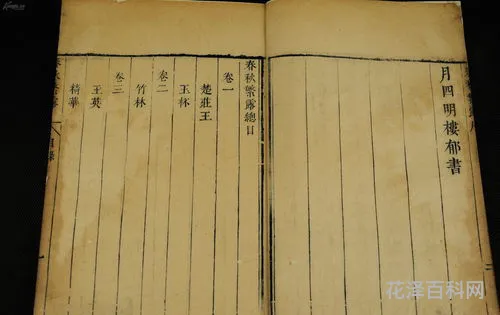 月四明樓郁書
春秋繁露總目
卷一
楚莊王
玉杯
卷二
竹林
卷三
玉英
精華
目錄
花泽百科网